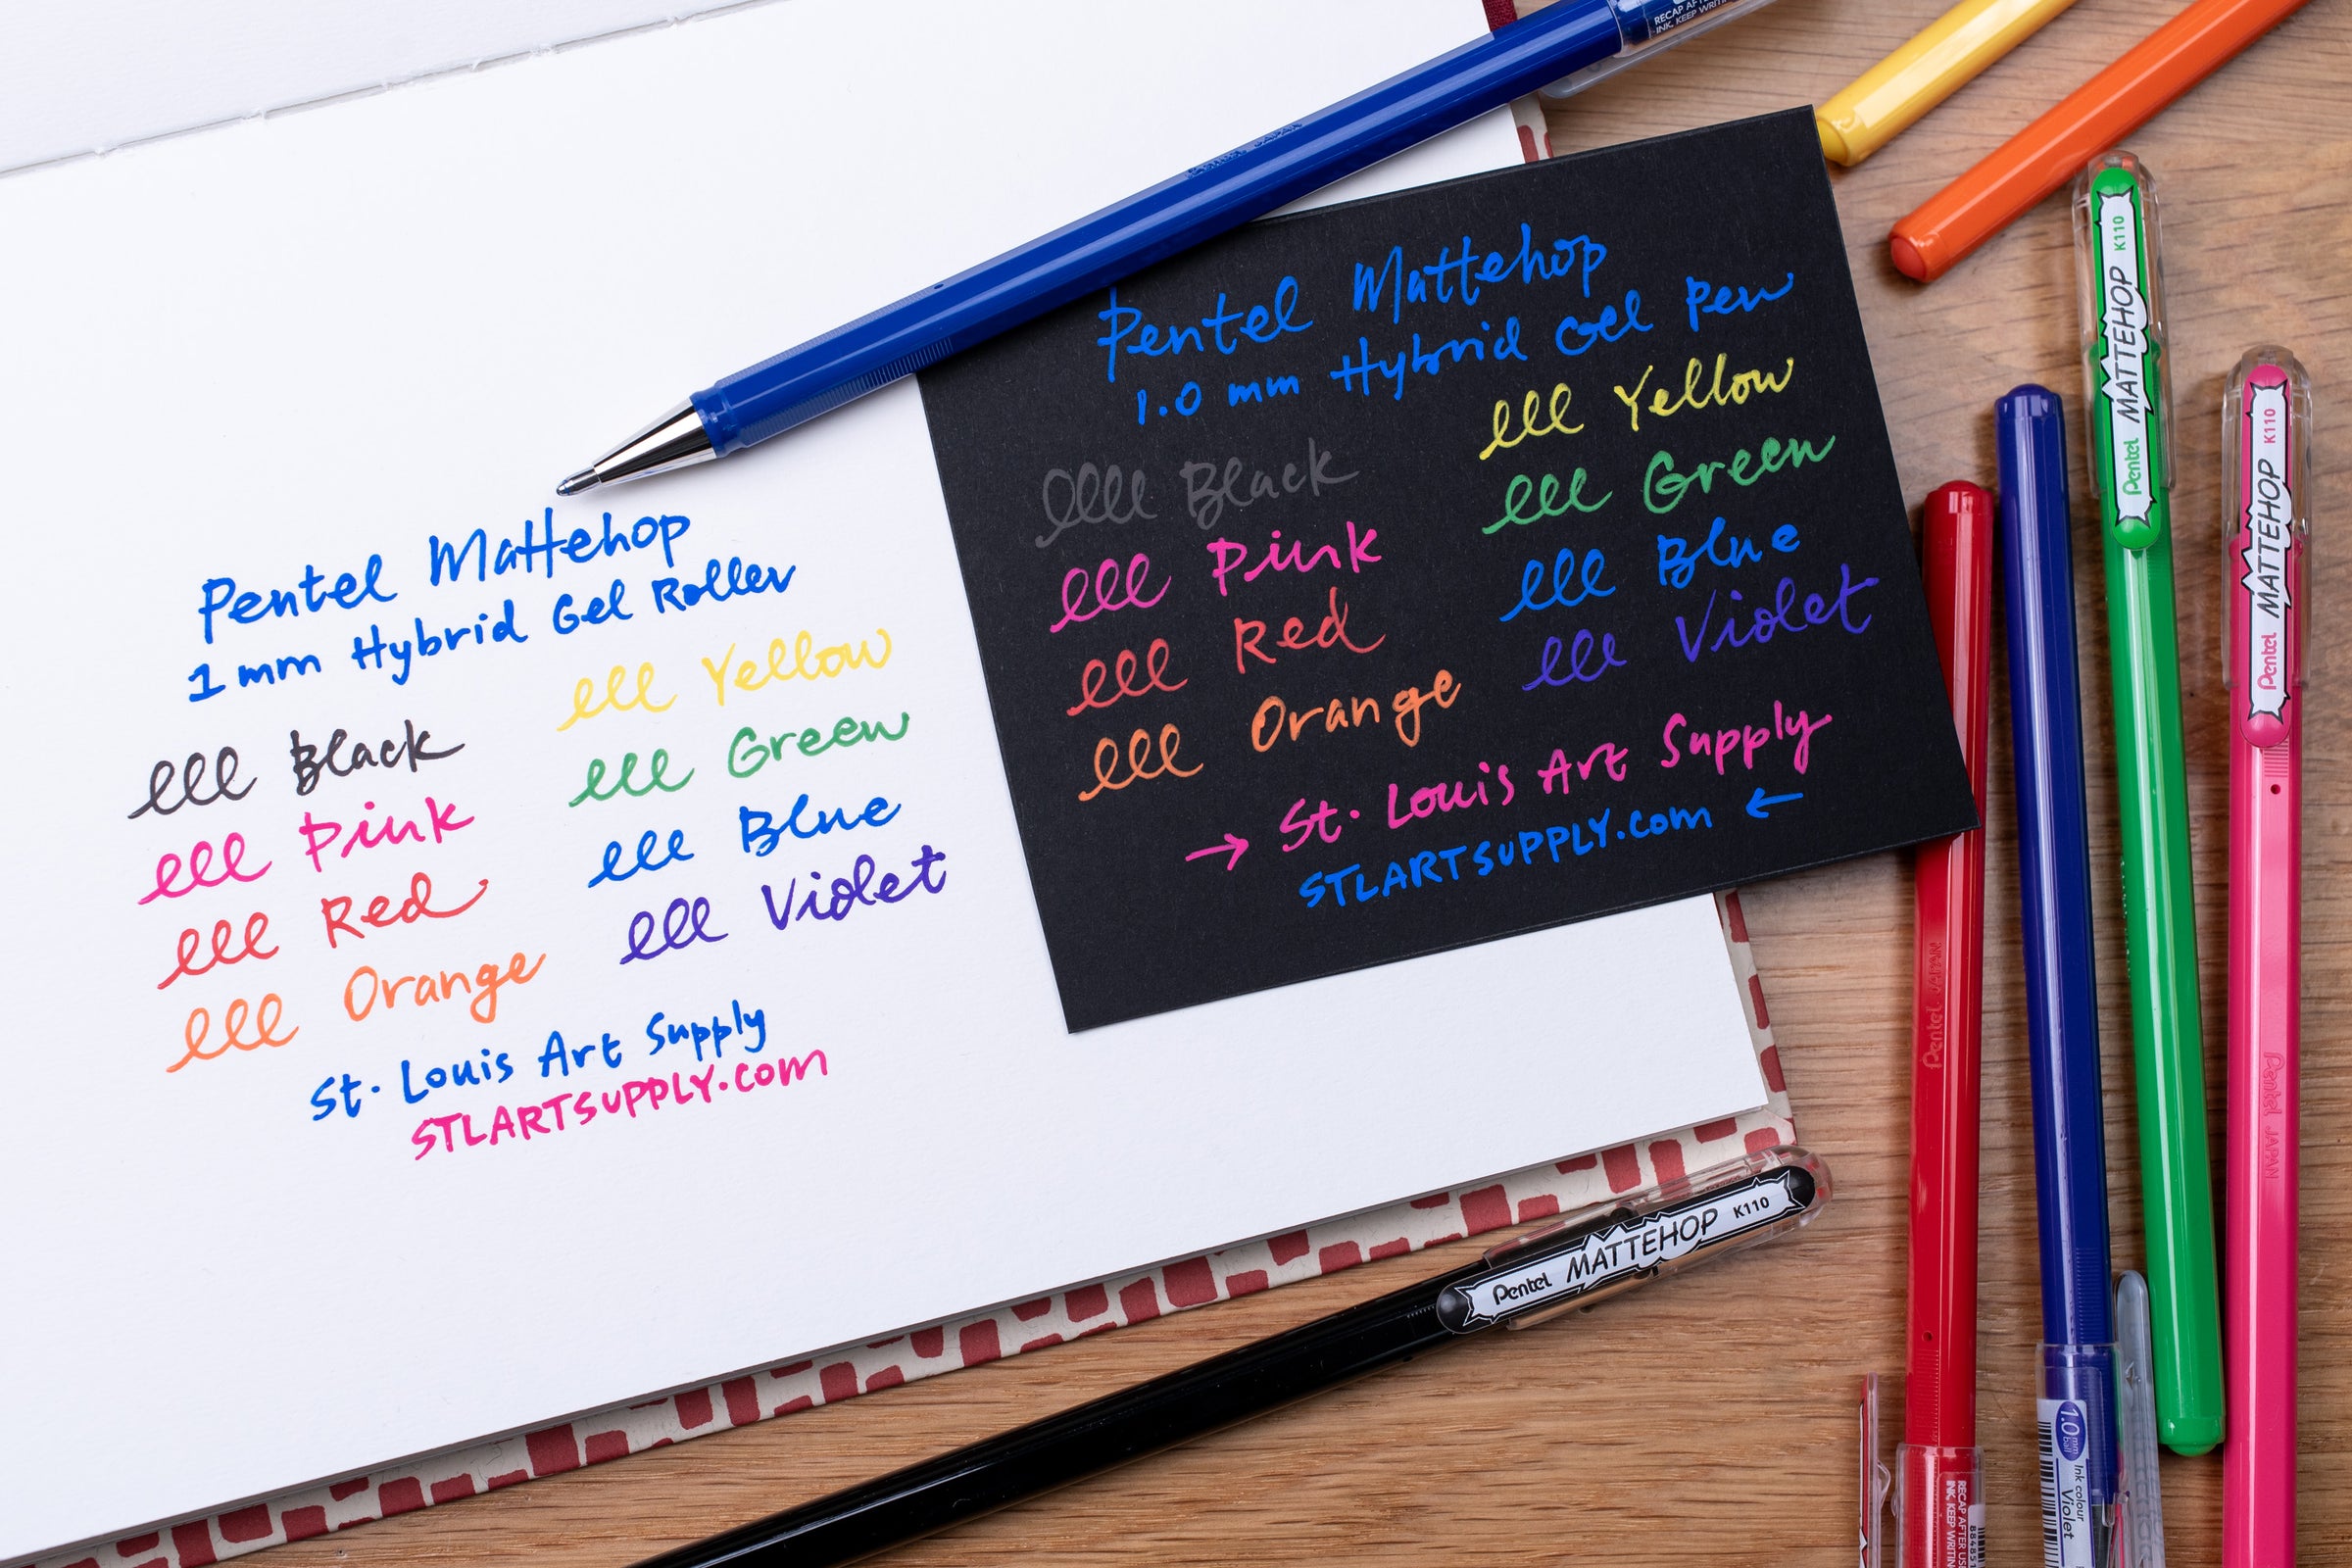 Pentel Mattehop
1mm Hybrid Gel Roller
lll Black
lll Pink
lll Red
lll Orange
lll Yellow
lll Green
lll Blue
lll Violet
St. Louis Art Supply
STLARTSUPPLY.com
Pentel Mattehop
1.0 mm Hybrid Gel Pen
llll Black
lll Pink
lll Red
lll Orange
lll Yellow
lll Green
lll Blue
lll Violet
→ St. Louis Art Supply
STLARTSUPPLY.com ←
RECAP AFTER
INK, KEEP WRITING
Pentel MATTEHOP K110
Pentel MATTEHOP K110
Pentel MATTEHOP K110
Pentel JAPAN
Pentel JAPAN
1.0 mm
ball
Ink colour
Violet
RECAP AFTER US
INK, KEEP WRITIN